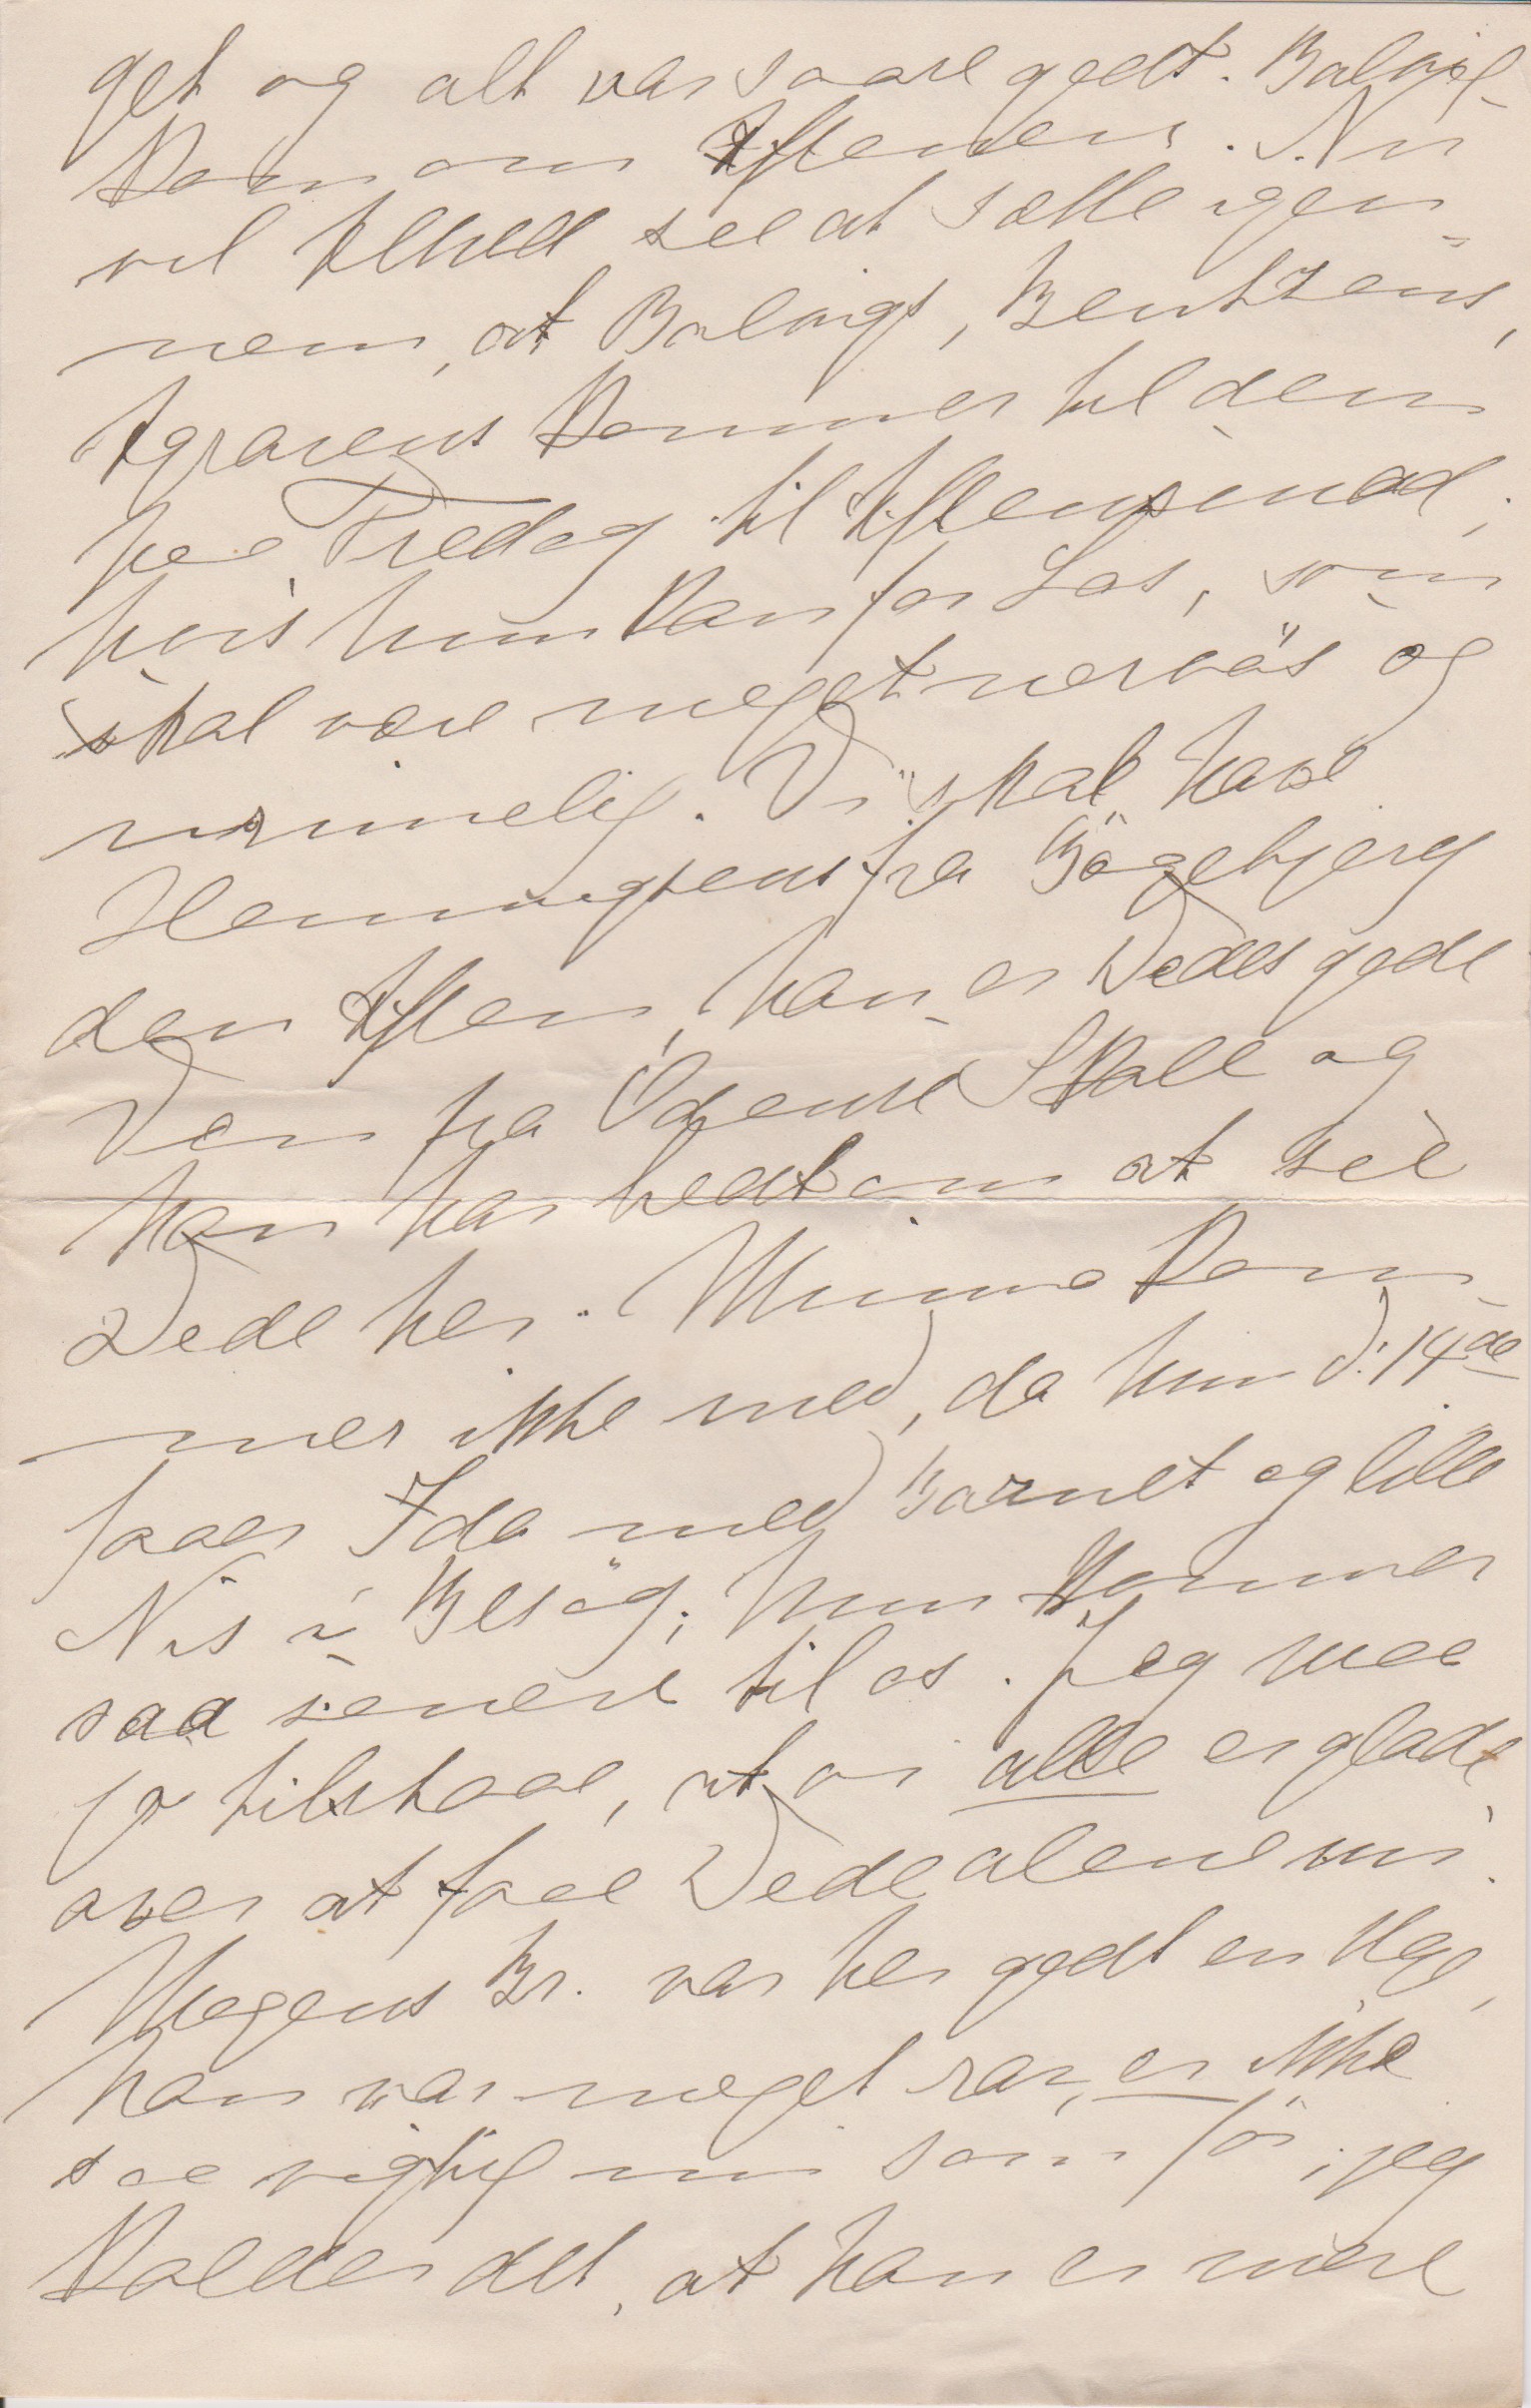 get og alt var saare godt. Balvig
kom om Aftenen. Nu
vil Elhed see at sætte igen-
nem, at Balvigs, Bentzens,
Agravens kommer til dem
paa Fredag til Aftensmad,
hvis hun kan for Las, som
skal være meget nervøs og
urimelig. Vi skal have
Henningsens fra Bøgebjerg
den Aften, han er Dedes gode
Ven fra Odense Skole og
han har bedt om at see
Dede her. Minna kom-
mer ikke med, da hun d. 14de
faaer Ida med Barnet og lille
Nis i Besøg; hun kommer
saa senere til os. Jeg maa
jo tilstaae, at vi alle er glade
over at faae Dede alene nu.
Mogens Br. var her godt en Uge,
han var meget rar, er ikke
saa vigtig nu som før, jeg
kalder det, at han er mere